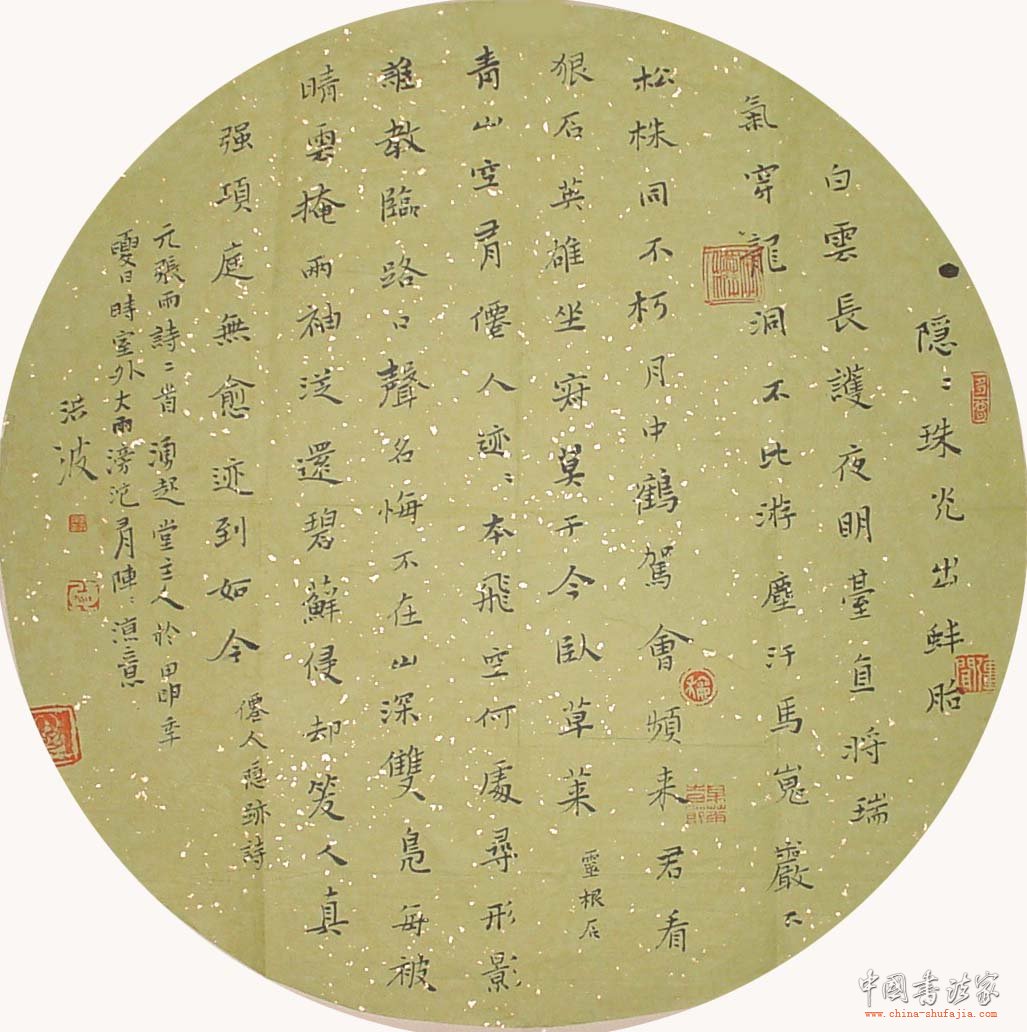 隱〻珠光出蚌胎
白雲長護夜明臺直將瑞
氣穿龍洞不比游塵汙馬嵬巖下
松株同不朽月中鶴駕會頻来君看
狠石英雄坐寂莫于今臥草萊
靈根石
青山空有僊人迹〻本飛空何處尋形影
誰教臨路口聲名悔不在山深雙鳧每被
晴雲掩兩袖還碧蘚侵却笑人真
强項庭無愈迹到如今
僊人隱跡詩
元張雨詩二首湧起堂主人於甲申年
夏日時室外大雨滂沱有陣〻涼意
洪波
中國書法家
www.china-shufajia.com